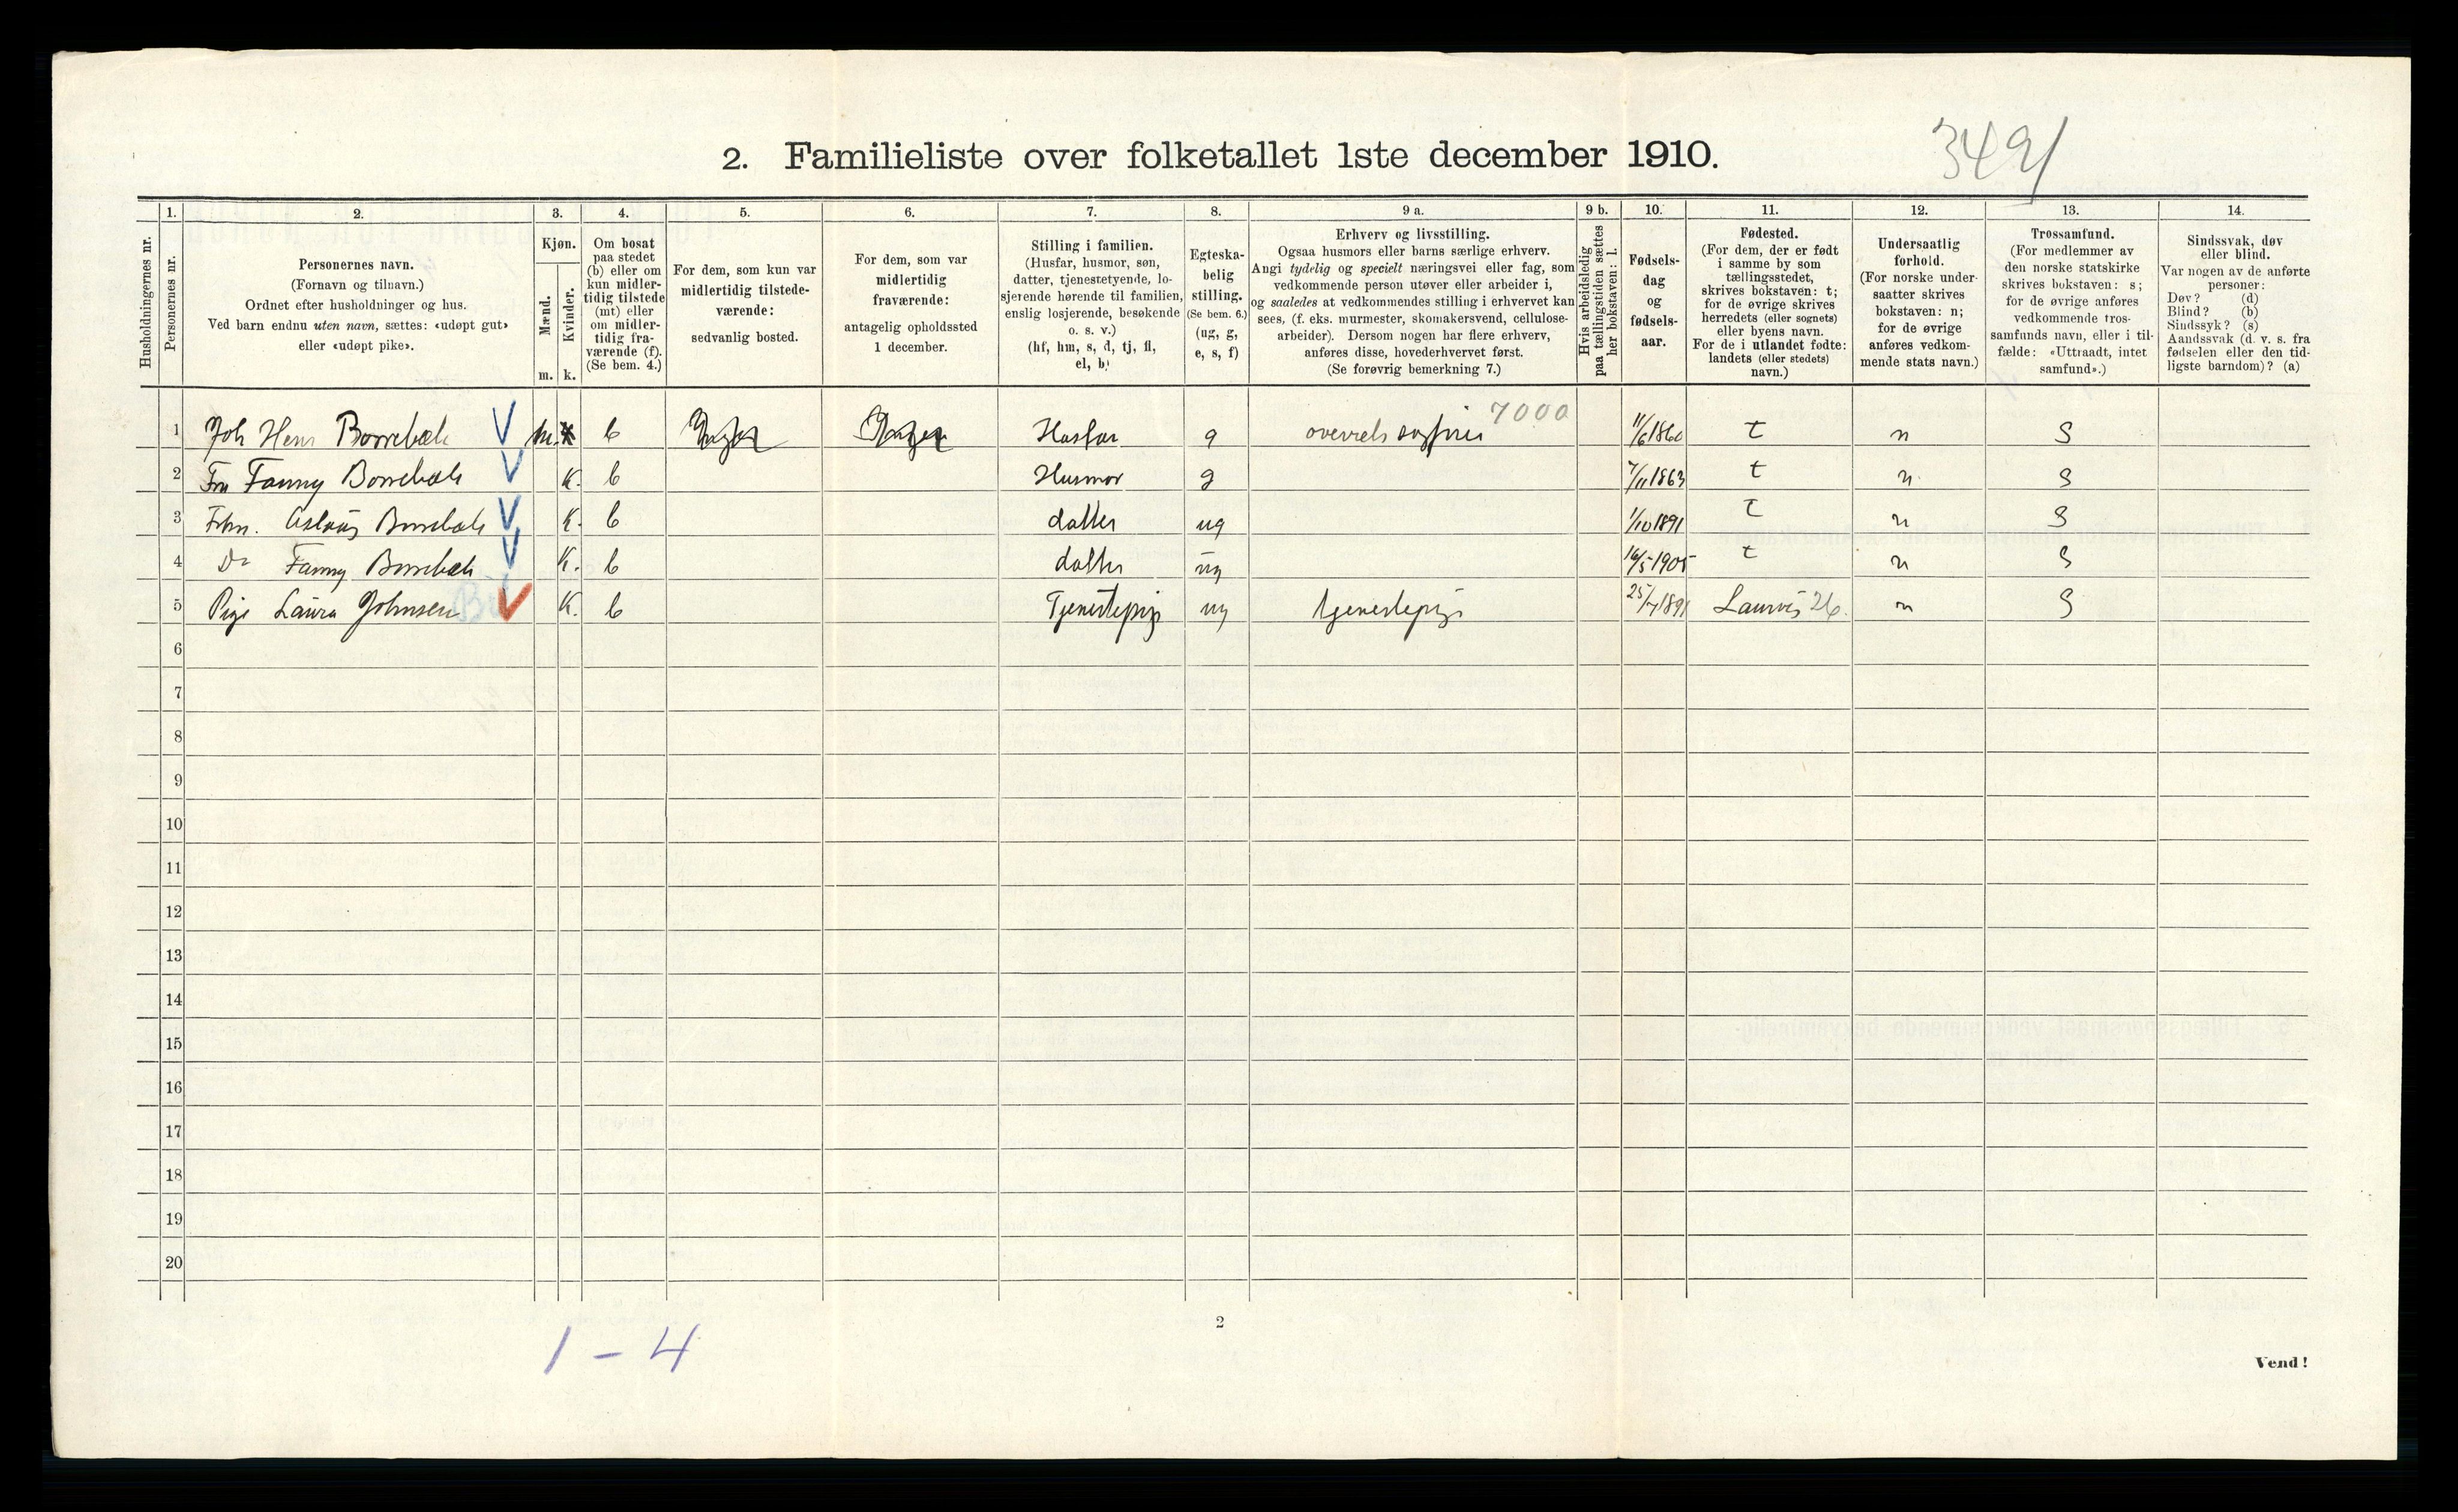 2. Familieliste over folketallet 1ste december 1910.
3491
Husholdningernes nr.
1.
Personernes nr.
2.
Personernes navn.
(Fornavn og tilnavn.)
Ordnet efter husholdninger og hus.
Ved barn endnu uten navn, sættes: «udøpt gut»
eller «udøpt pike».
3.
Kjøn.
Mænd.
Kvinder.
m. k.
4.
Om bosat
paa stedet
(b) eller om
kun midler-
tidig tilstede
(mt) eller
om midler-
tidig fra-
værende (f).
(Se bem. 4.)
5.
For dem, som kun var
midlertidig tilstede-
værende:
sedvanlig bosted.
6.
For dem, som var
midlertidig
fraværende:
antagelig opholdssted
1 december.
7.
Stilling i familien.
(Husfar, husmor, søn,
datter, tjenestetyende, lo-
sjerende hørende til familien,
enslig losjerende, besøkende
o. s. v.)
(hf, hm, s, d, tj, fl,
el, b)
8.
Egteska-
belig
stilling.
(Se bem. 6.)
(ug, g,
e, s, f)
9 a.
Erhverv og livsstilling.
Ogsaa husmors eller barns særlige erhverv.
Angi tydelig og specielt næringsvei eller fag, som
vedkommende person utøver eller arbeider i,
og saaledes at vedkommendes stilling i erhvervet kan
sees, (f. eks. murmester, skomakersvend, cellulose-
arbeider). Dersom nogen har flere erhverv,
anføres disse, hovederhvervet først.
(Se forøvrig bemerkning 7.)
9 b.
Hvis arbeidsledig
paa tællingstiden sættes
her bokstaven: l.
10.
Fødsels-
dag
og
fødsels-
aar.
11.
Fødested.
(For dem, der er født
i samme by som
tællingsstedet,
skrives bokstaven: t;
for de øvrige skrives
herredets (eller sognets)
eller byens navn.
For de i utlandet fødte:
landets (eller stedets)
navn.)
12.
Undersaatlig
forhold.
(For norske under-
saatter skrives
bokstaven: n;
for de øvrige
anføres vedkom-
mende stats navn.)
13.
Trossamfund.
(For medlemmer av
den norske statskirke
skrives bokstaven: s;
for de øvrige anføres
vedkommende tros-
samfunds navn, eller i til-
fælde: «Uttraadt, intet
samfund».)
14.
Sindssvak, døv
eller blind.
Var nogen av de anførte
personer:
Døv? (d)
Blind? (b)
Sindssyk? (s)
Aandssvak (d. v. s. fra
fødselen eller den tid-
ligste barndom)? (a)
1 Joh Hens Borrebæk V m. b Husfar g 7000 11/6 1860 t n S
2 Fru Fanny Borrebæk V K. b Husmor g 7/11 1863 t n S
3 Frkn. Aslaug Borrebæk V K. b datter ug 1/10 1891 t n S
4 Do Fanny Borrebæk V K. b datter ug 16/5 1905 t n S
5 Pige Laura Johnsen V K. b Tjenestepige ug tjenestepige 25/7 1891 Laurvig 26. n S
6
7
8
9
10
11
12
13
14
15
16
17
18
19
20
2
1 - 4
Vend!